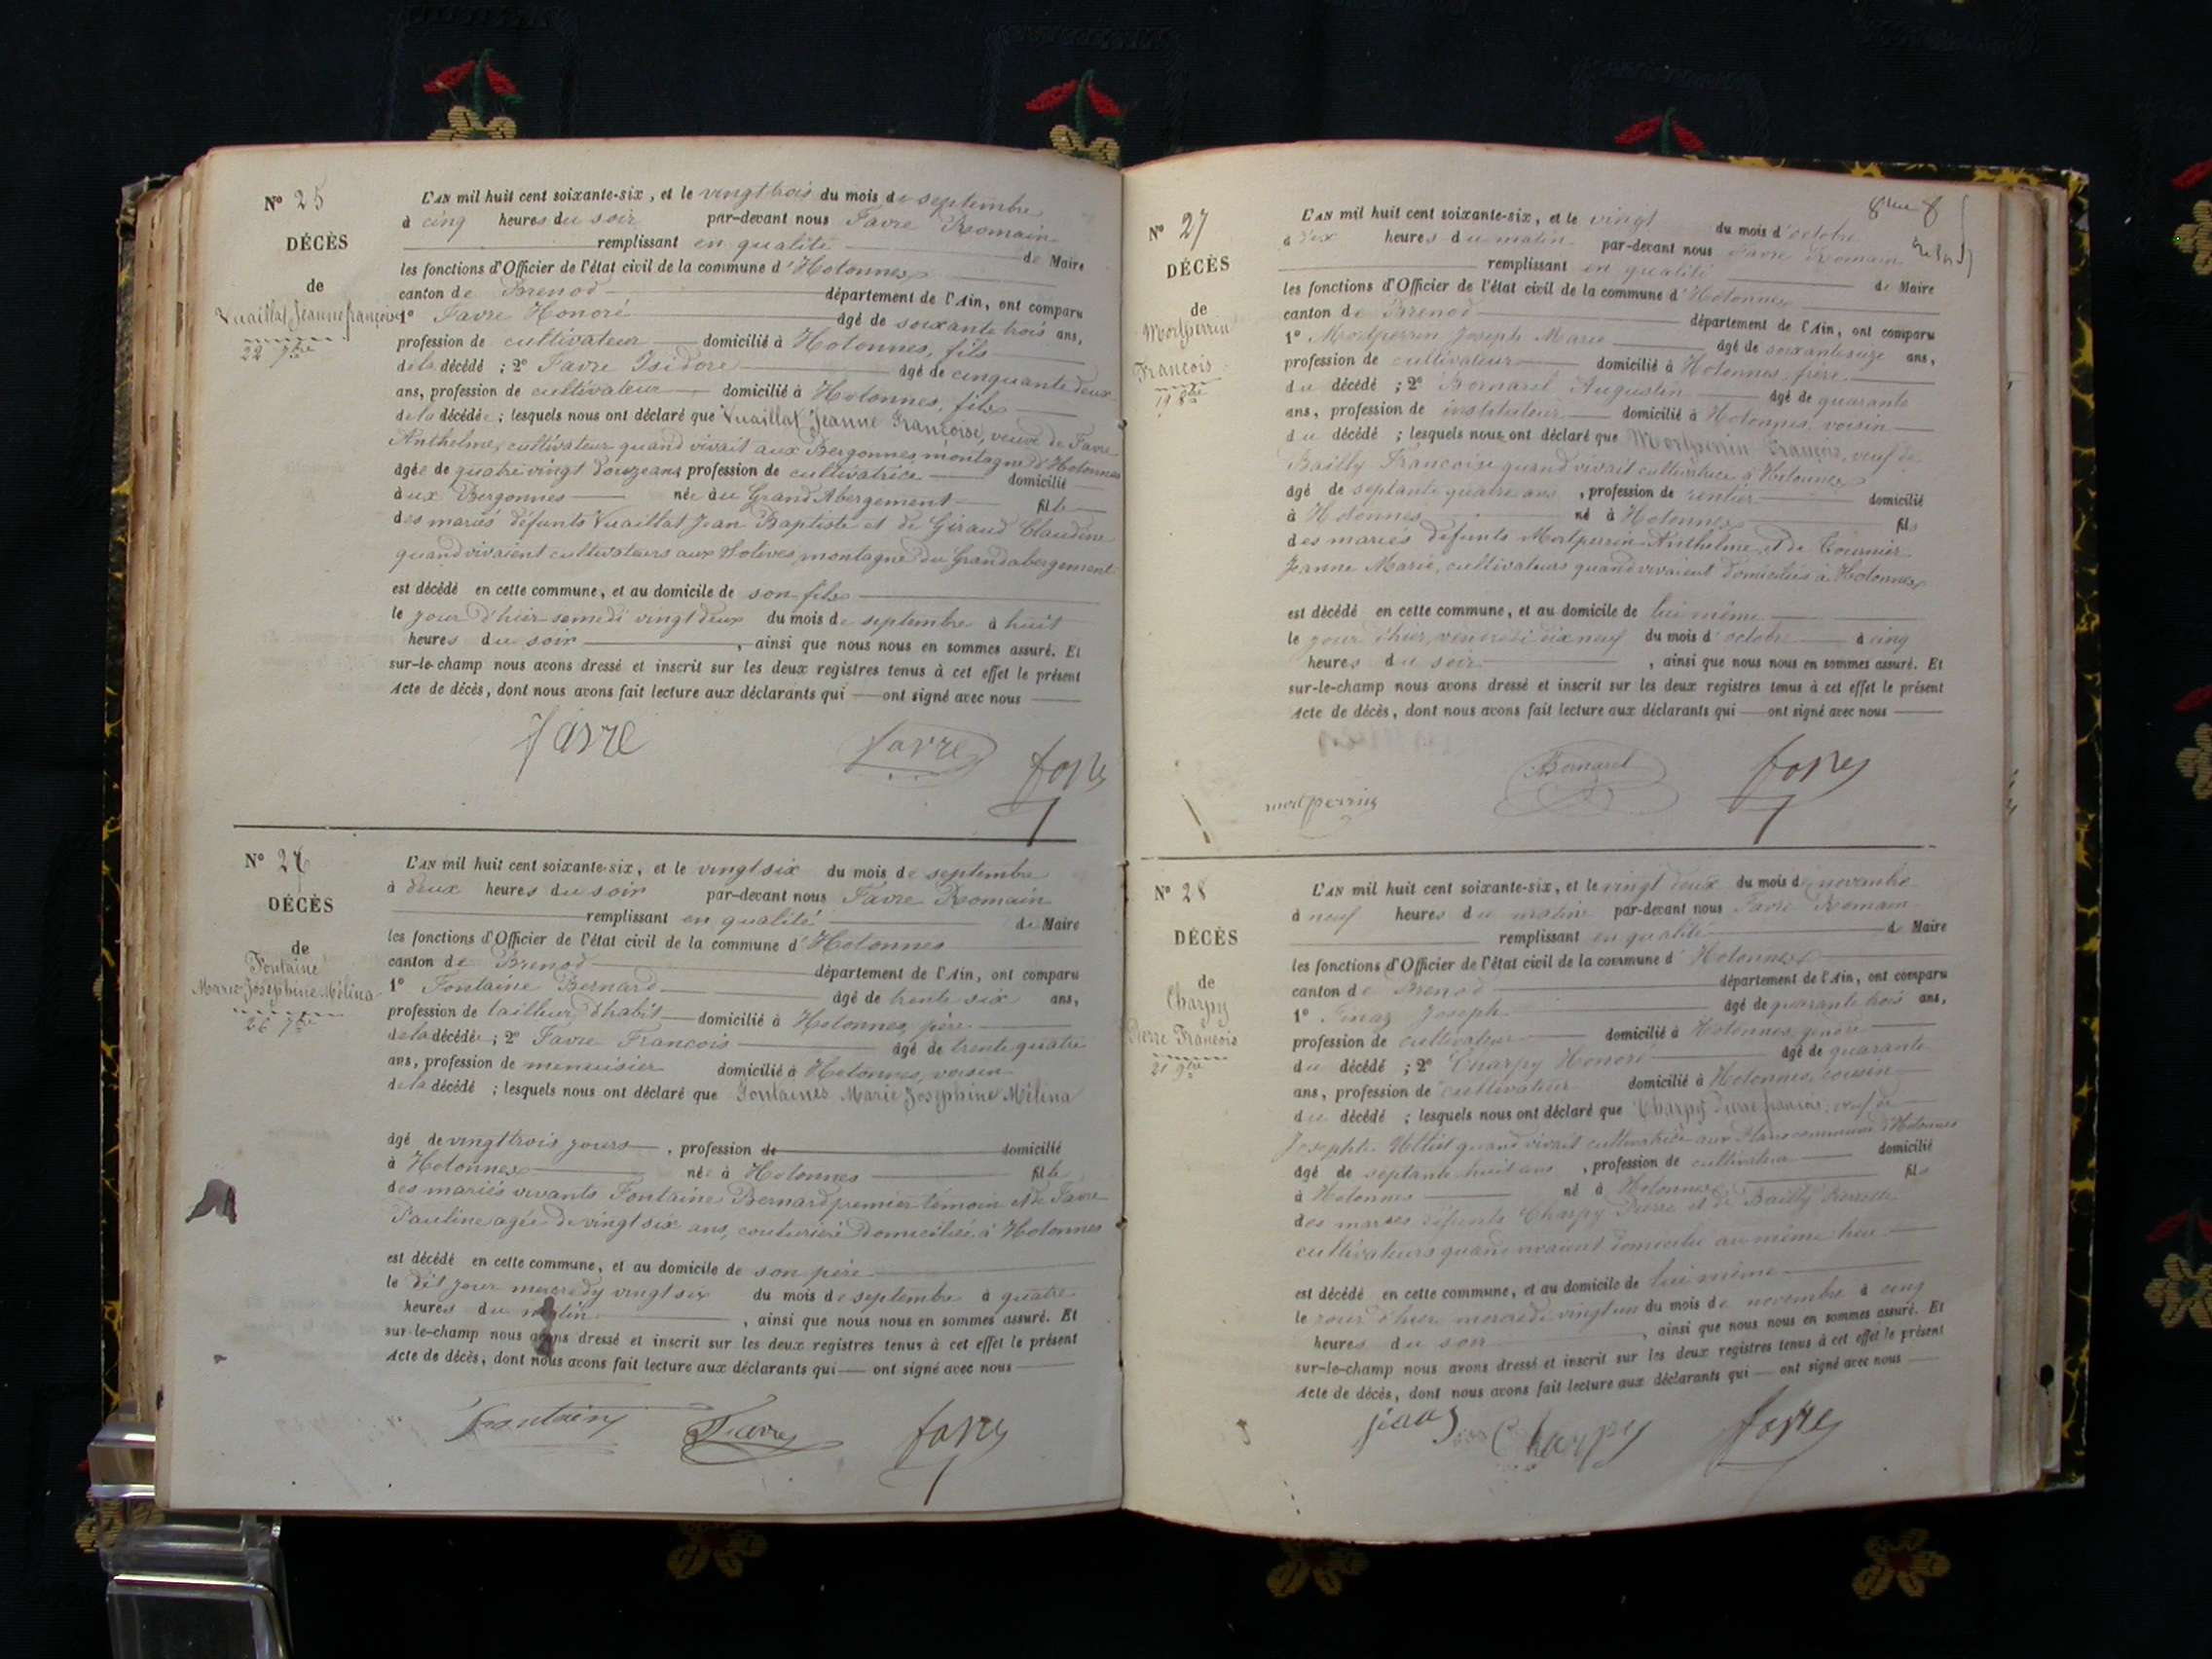 N° 25
DÉCÈS
de
Vuaillat Jeanne françoise
22 7bre
L'AN mil huit cent soixante-six, et le vingt trois du mois de septembre
à cinq heures du soir par-devant nous Favre Romain
remplissant en qualité de Maire
les fonctions d'Officier de l'état civil de la commune d'Hotonnes
canton de Brenod département de l'Ain, ont comparu
1° Favre Honoré âgé de soixante trois ans,
profession de cultivateur domicilié à Hotonnes, fils
de la décédé ; 2° Favre Isidore âgé de cinquante deux
ans, profession de cultivateur domicilié à Hotonnes, fils
de la décédée ; lesquels nous ont déclaré que Vuaillat Jeanne Françoise, veuve de Favre
Anthelme, cultivateur quand vivait aux Bergonnes montagne d'Hotonnes
âgée de quatre vingt douze ans, profession de cultivatrice domicilié
aux Bergonnes née au Grand Abergement fille
des mariés défunts Vuaillat Jean Baptiste et de Giraud Claudine
quand vivaient cultivateurs aux Solives montagne du Grandabergement
est décédé en cette commune, et au domicile de son fils
le jour d'hier samedi vingt deux du mois de septembre à huit
heures du soir, ainsi que nous nous en sommes assuré. Et
sur-le-champ nous avons dressé et inscrit sur les deux registres tenus à cet effet le présent
Acte de décès, dont nous avons fait lecture aux déclarants qui ont signé avec nous
favre favre favre
N° 26
DÉCÈS
de
Fontaine
Marie Joséphine Mélina
26 7bre
L'AN mil huit cent soixante-six, et le vingt six du mois de septembre
à deux heures du soir par-devant nous Favre Romain
remplissant en qualité de Maire
les fonctions d'Officier de l'état civil de la commune d'Hotonnes
canton de Brenod département de l'Ain, ont comparu
1° Fontaine Bernard âgé de trente six ans,
profession de tailleur d'habit domicilié à Hotonnes, père
de la décédée ; 2° Favre François âgé de trente quatre
ans, profession de menuisier domicilié à Hotonnes, voisin
de la décédé ; lesquels nous ont déclaré que Fontaines Marie Joséphine Mélina
âgé de vingt trois jours, profession de domicilié
à Hotonnes née à Hotonnes fille
des mariés vivants Fontaine Bernard premier témoin et de Favre
Pauline agée de vingt six ans, couturière domiciliée à Hotonnes
est décédé en cette commune, et au domicile de son père
le dit jour mercredy vingt six du mois de septembre à quatre
heures du matin, ainsi que nous nous en sommes assuré. Et
sur-le-champ nous avons dressé et inscrit sur les deux registres tenus à cet effet le présent
Acte de décès, dont nous avons fait lecture aux déclarants qui ont signé avec nous
fontaine Favre favre
N° 27
DÉCÈS
de
Mortperrin
François
19 8bre
L'AN mil huit cent soixante-six, et le vingt du mois d'octobre
à dix heures du matin par-devant nous Favre Romain
remplissant en qualité de Maire
les fonctions d'Officier de l'état civil de la commune d'Hotonnes
canton de Brenod département de l'Ain, ont comparu
1° Mortperrin Joseph Marie âgé de ans,
profession de cultivateur domicilié à Hotonnes, frère
du décédé ; 2° Bornarel Augustin âgé de quarante
ans, profession de instituteur domicilié à Hotonnes, voisin
du décédé ; lesquels nous ont déclaré que Mortperrin François, veuf de
Bailly Françoise quand vivait cultivatrice à Hotonnes
âgé de septante quatre ans, profession de rentier domicilié
à Hotonnes né à Hotonnes fils
des mariés défunts Mortperrin Anthelme et de Tournier
Jeanne Marie, cultivateurs quand vivaient domiciliés à Hotonnes
est décédé en cette commune, et au domicile de lui même
le jour d'hier, vendredi dix neuf du mois d'octobre à cinq
heures du soir, ainsi que nous nous en sommes assuré. Et
sur-le-champ nous avons dressé et inscrit sur les deux registres tenus à cet effet le présent
Acte de décès, dont nous avons fait lecture aux déclarants qui ont signé avec nous
mortperrin Bornarel favre
N° 28
DÉCÈS
de
Charpy
Pierre François
21 9bre
L'AN mil huit cent soixante-six, et le vingt deux du mois de novembre
à neuf heures du matin par-devant nous Favre Romain
remplissant en qualité de Maire
les fonctions d'Officier de l'état civil de la commune d'Hotonnes
canton de Brenod département de l'Ain, ont comparu
1° Joseph âgé de quarante trois ans,
profession de cultivateur domicilié à Hotonnes, gendre
du décédé ; 2° Charpy Honoré âgé de quarante
ans, profession de cultivateur domicilié à Hotonnes, cousin
du décédé ; lesquels nous ont déclaré que Charpy Pierre françois, veuf de
Josephte quand vivait cultivatrice aux Plans commune d'Hotonnes
âgé de septante huit ans, profession de cultivateur domicilié
à Hotonnes né à Hotonnes fils
des mariés défunts Charpy Pierre et de Bailly Pierrette
cultivateurs quand vivaient domicilié au même lieu
est décédé en cette commune, et au domicile de lui même
le jour d'hier mercredi vingt un du mois de novembre à cinq
heures du soir, ainsi que nous nous en sommes assuré. Et
sur-le-champ nous avons dressé et inscrit sur les deux registres tenus à cet effet le présent
Acte de décès, dont nous avons fait lecture aux déclarants qui ont signé avec nous
Charpy favre